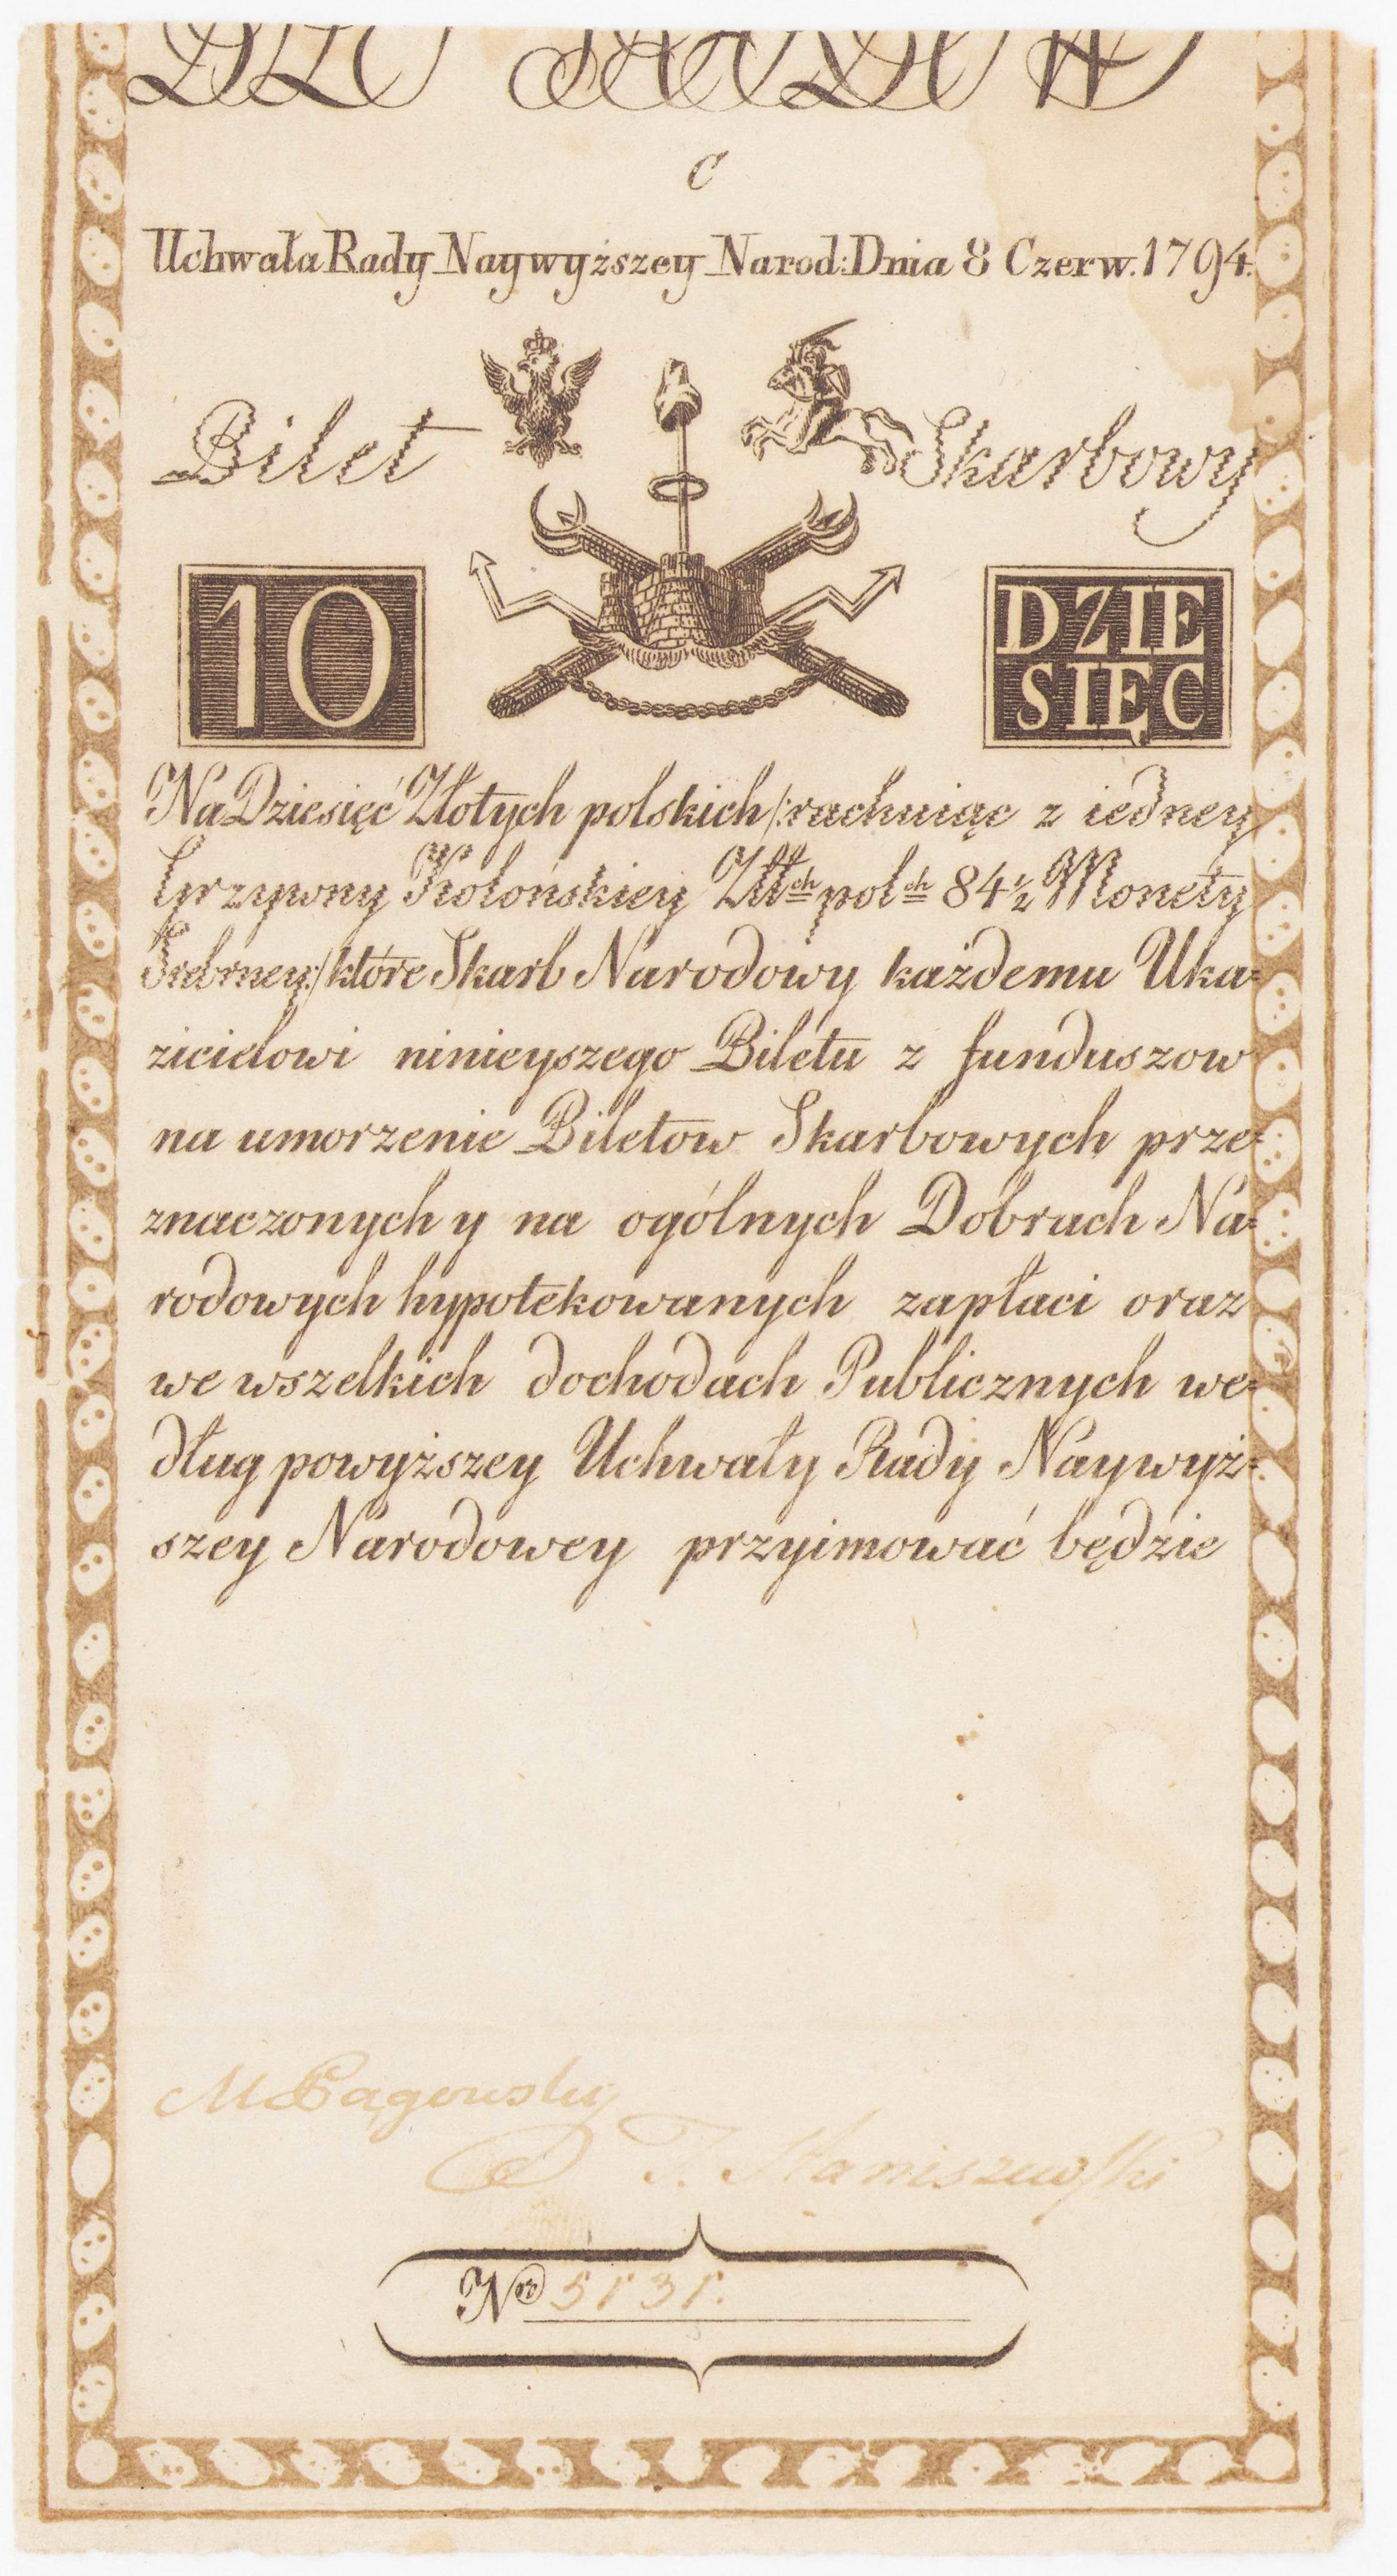 C
Uchwała Rady Naywyższey Narod: Dnia 8 Czerw. 1794.
Bilet Skarbowy
10
DZIE
SIĘĆ
Na Dziesięć Złotych polskich /: rachuiąc z iedney
Grzywny Kolońskiey Złtch polch 84½ Monety
Srebrney :/ które Skarb Narodowy każdemu Uka=
zicielowi ninieyszego Biletu z funduszow
na umorzenie Biletow Skarbowych prze=
znaczonych y na ogólnych Dobrach Na=
rodowych hypotekowanych zapłaci oraz
we wszelkich dochodach Publicznych we=
dług powyższey Uchwały Rady Naywyż=
szey Narodowey przyimować będzie
M Łągowsky
J. Staniszewski
Nro 5131.